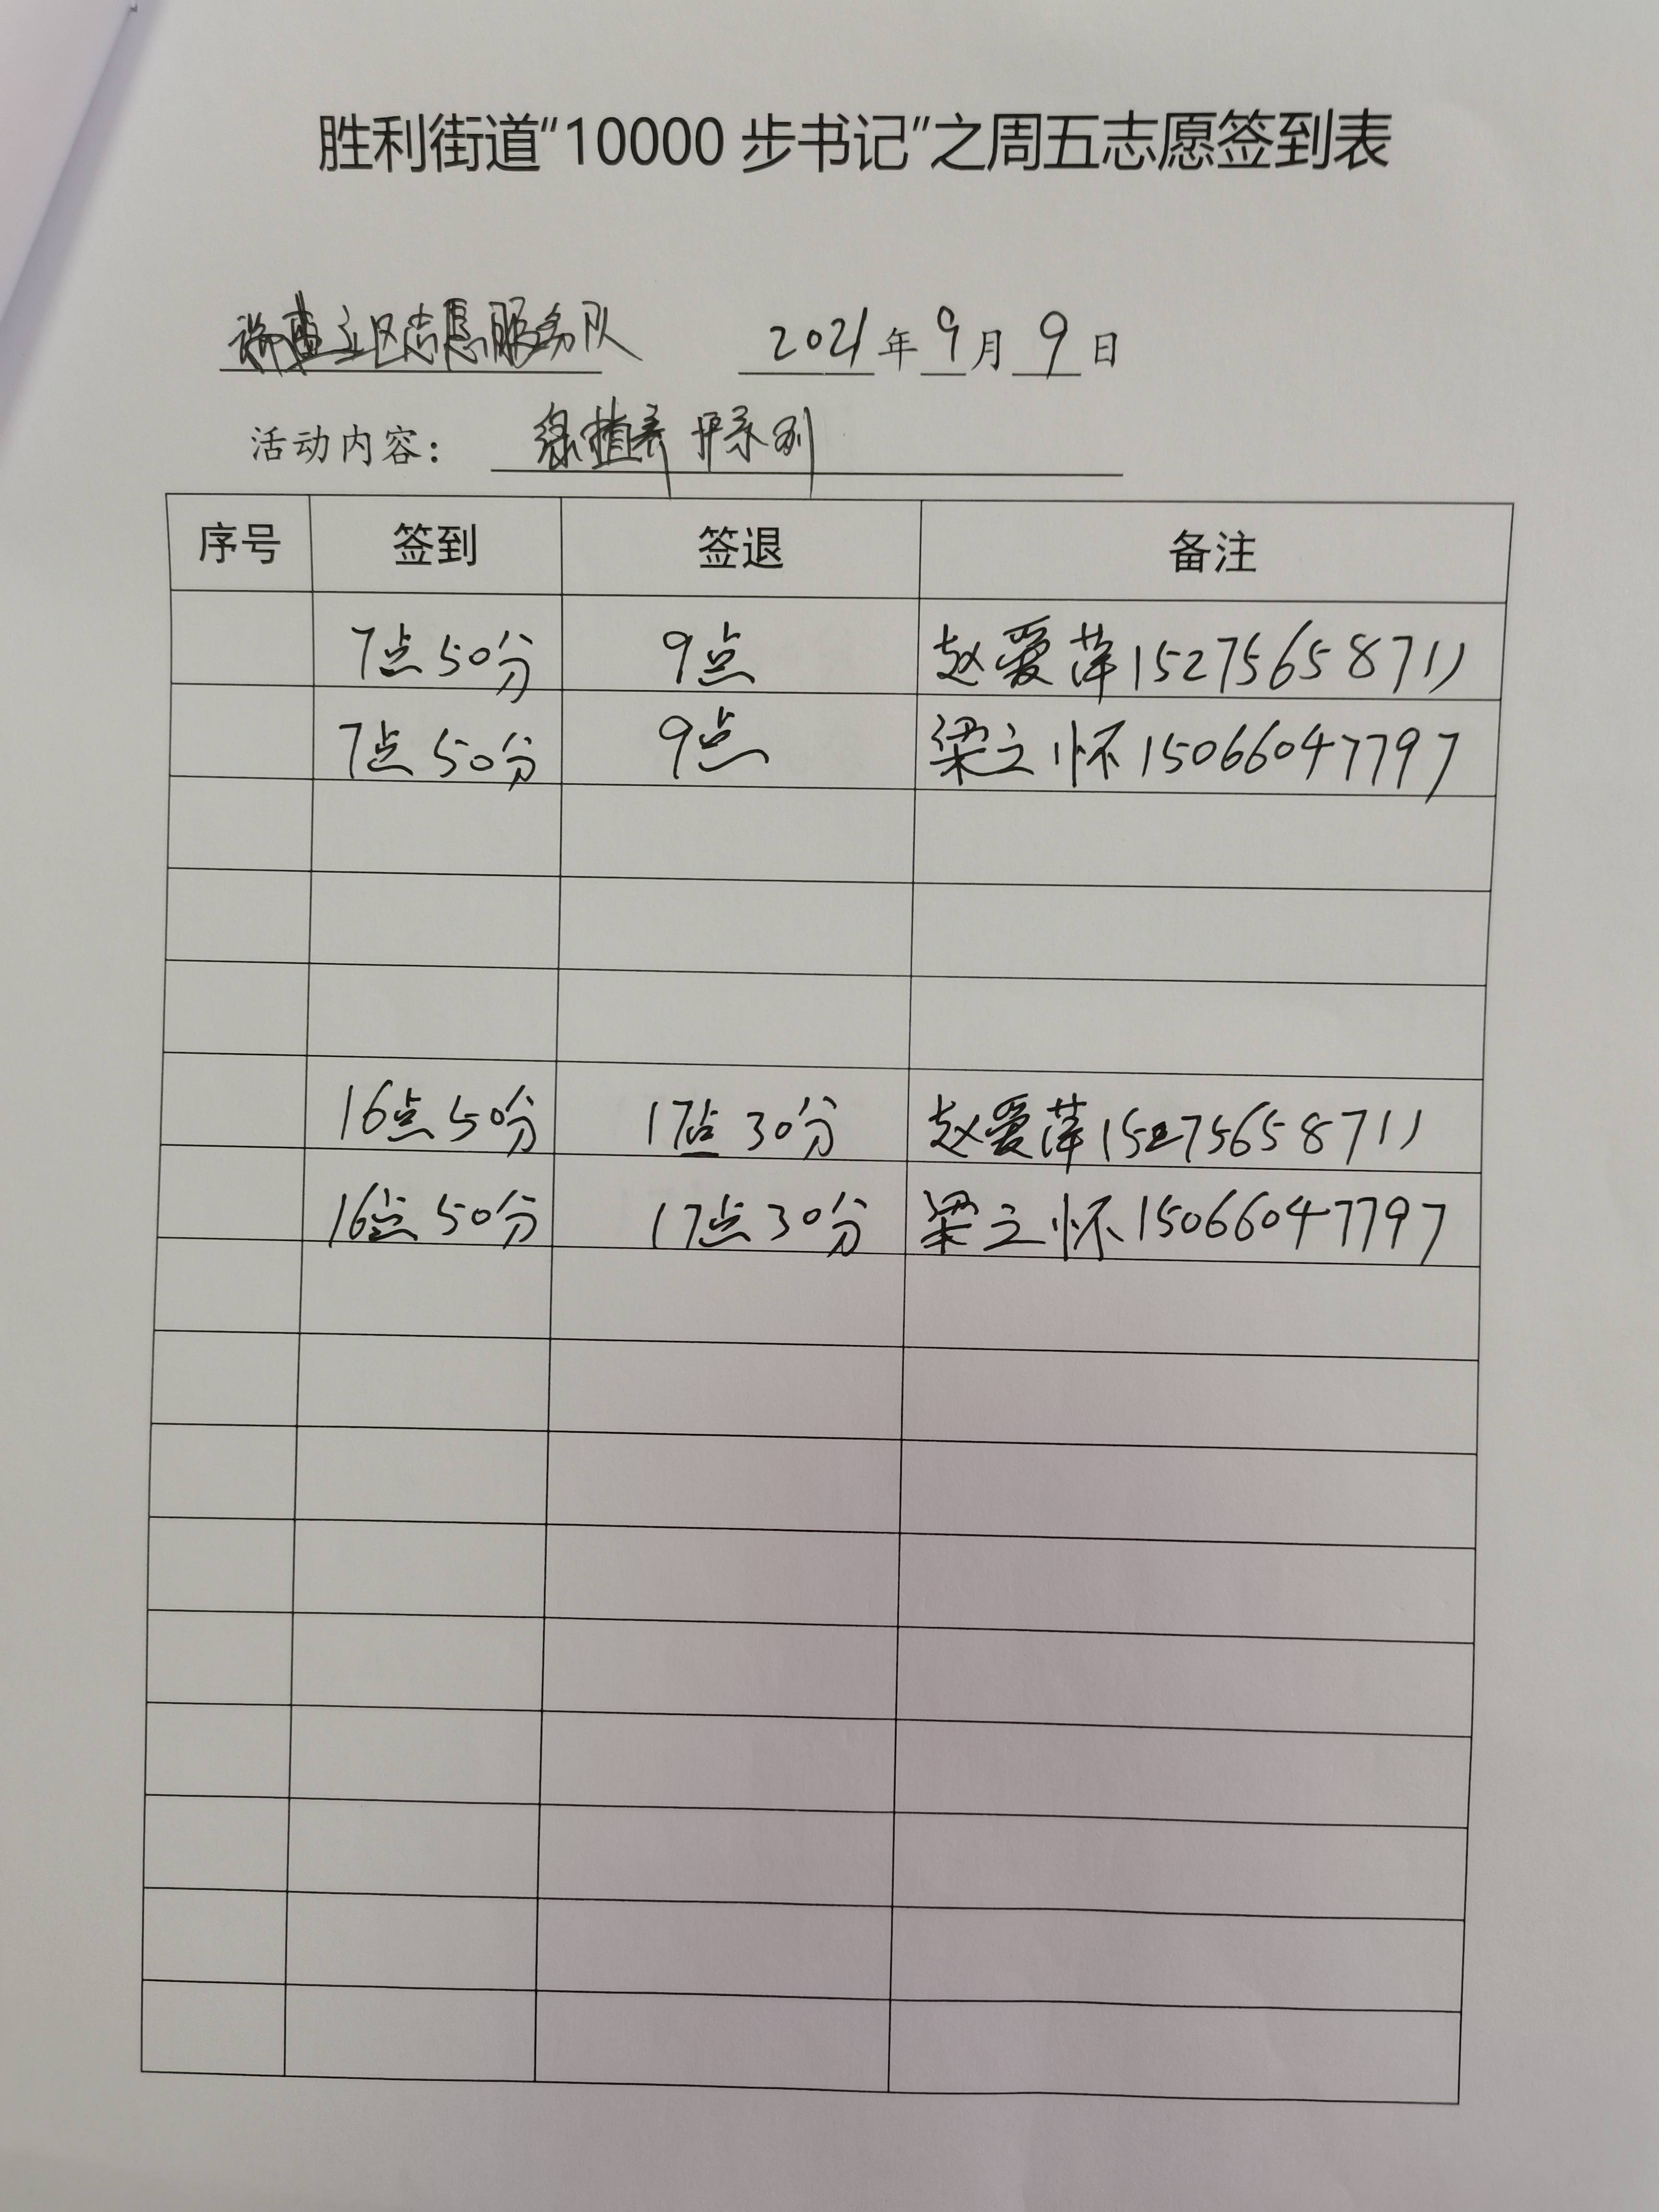 胜利街道“10000步书记”之周五志愿签到表
社区志愿服务队 2021年9月9日
活动内容：绿植养
序号 签到 签退 备注
7点50分 9点 赵爱萍15275658711
7点50分 9点 梁之怀15066047797
16点50分 17点30分 赵爱萍15275658711
16点50分 17点30分 梁之怀15066047797